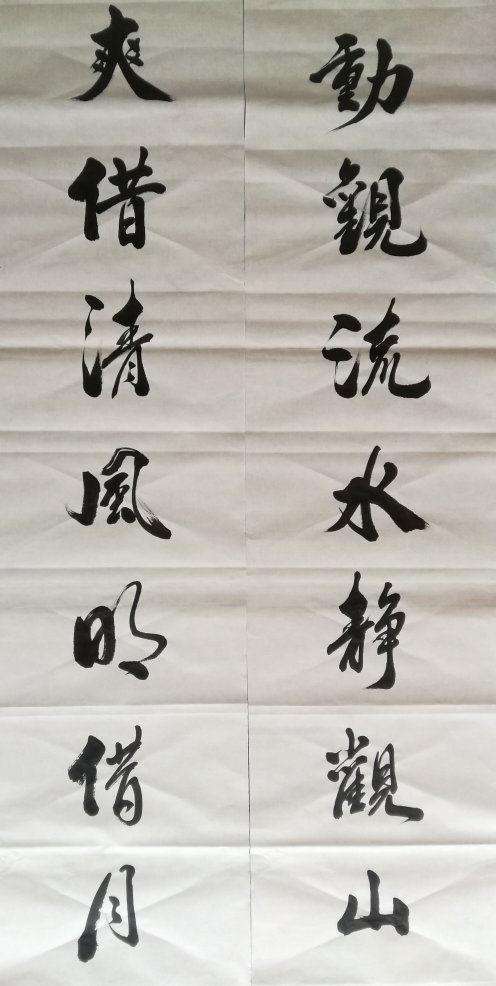 動觀流水静觀山
爽借清風明借月